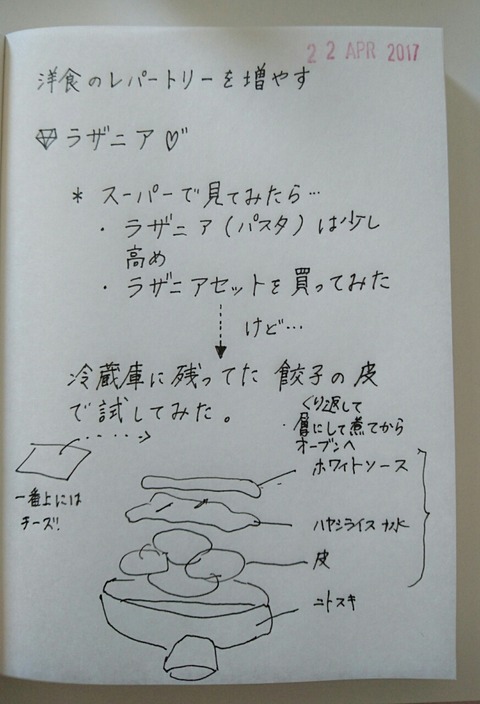 22 APR 2017
洋食のレパートリーを増やす
ラザニア♡
* スーパーで見てみたら…
・ラザニア(パスタ)は少し
高め
・ラザニアセットを買ってみた
けど…
冷蔵庫に残ってた餃子の皮
で試してみた。
くり返して
・層にして煮てから
オーブンへ
一番上には
チーズ!
ホワイトソース
ハヤシライス+水
皮
ニトスキ